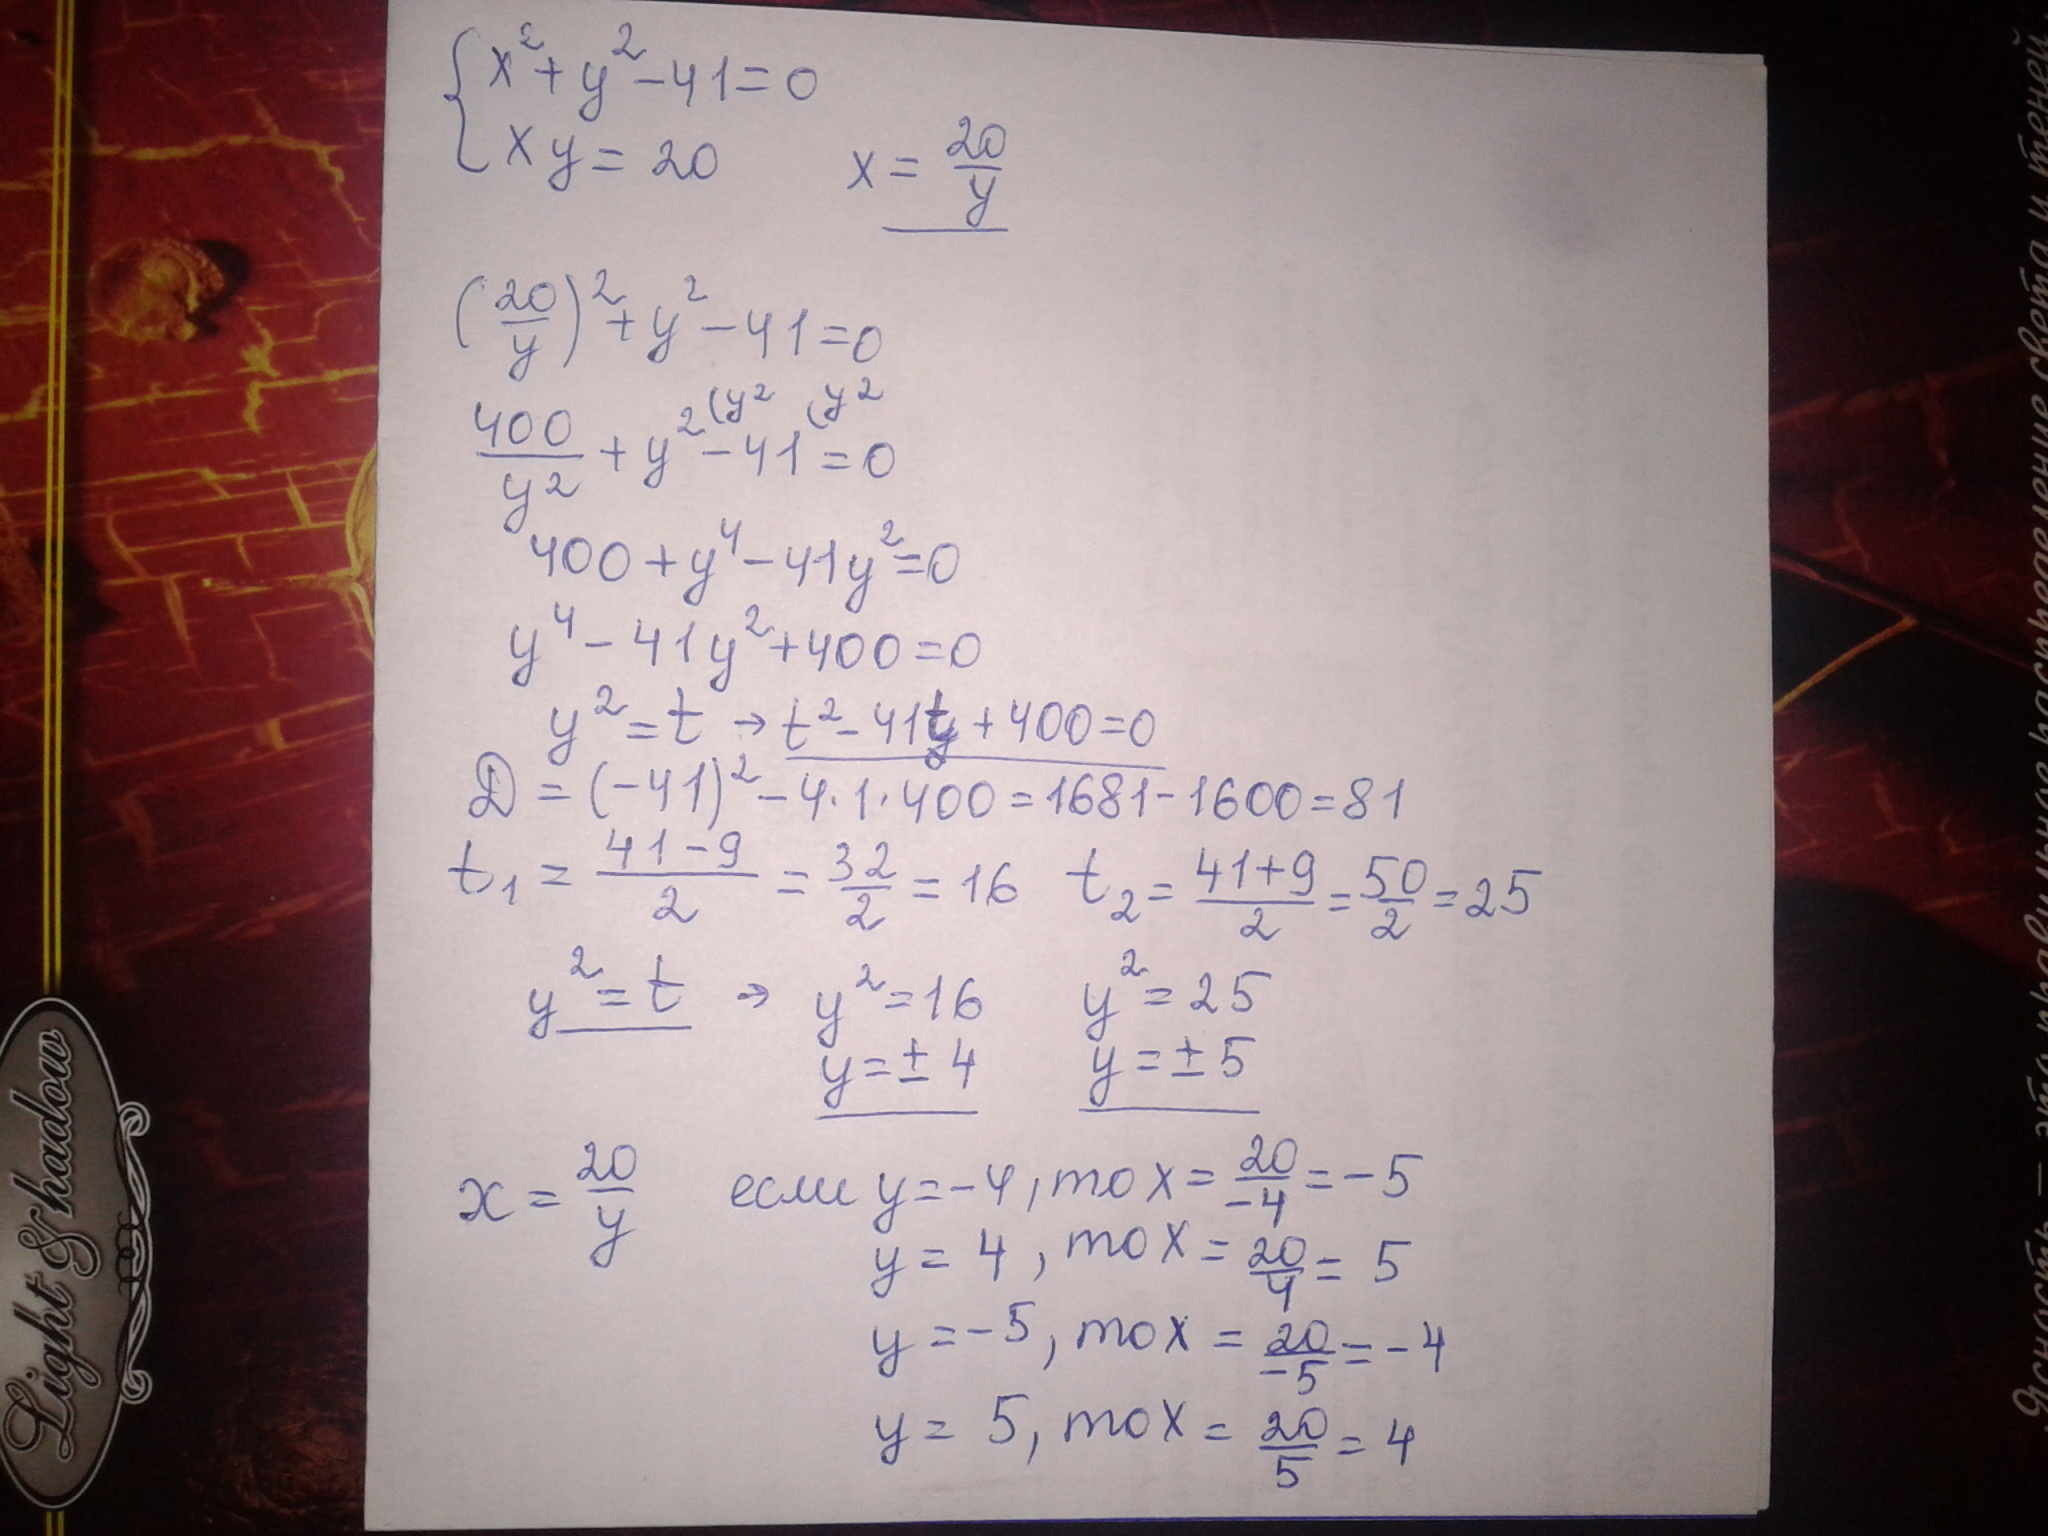 {x²+y²-41=0
xy=20   x=20/y
(20/y)²+y²-41=0
400/y²+y²⁽ʸ²-41⁽ʸ²=0
400+y⁴-41y²=0
y⁴-41y²+400=0
y²=t → t²-41t+400=0
D=(-41)²-4·1·400=1681-1600=81
t₁=(41-9)/2=32/2=16   t₂=(41+9)/2=50/2=25
y²=t → y²=16   y²=25
y=±4   y=±5
x=20/y   если y=-4, то x=20/-4=-5
y=4, то x=20/4=5
y=-5, то x=20/-5=-4
y=5, то x=20/5=4
Light & Shadow
Ясность — это правильное распределение света и теней